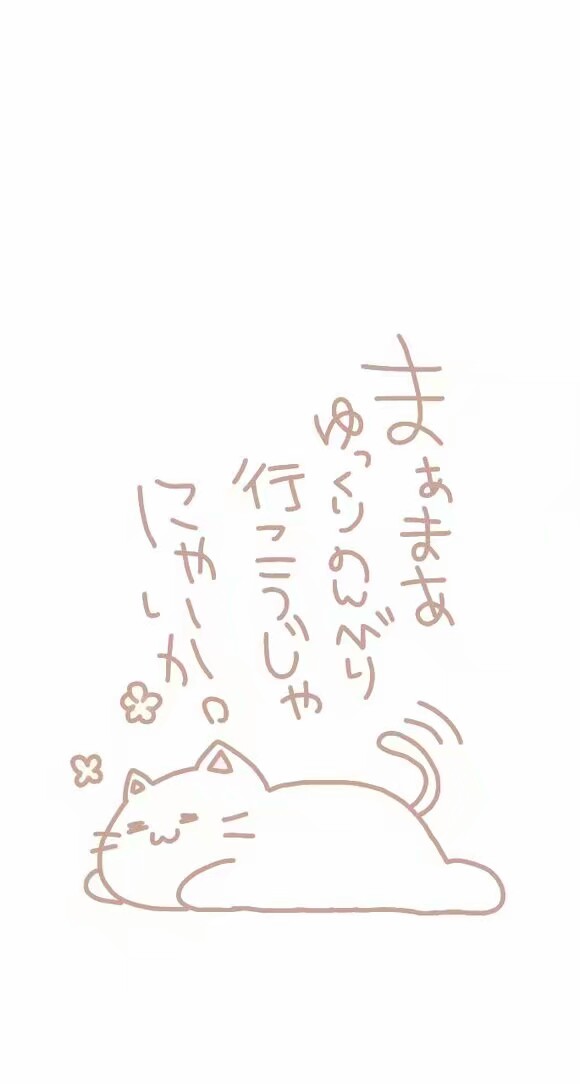 まぁまぁ
ゆっくりのんびり
行こうじゃ
にゃいか。